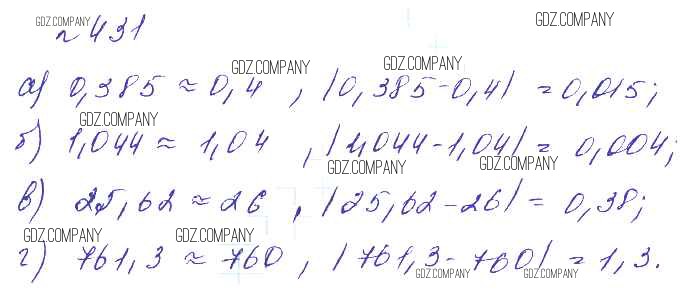 GDZ.COMPANY GDZ.COMPANY
№431
GDZ.COMPANY GDZ.COMPANY
а) 0,385 ≈ 0,4 , |0,385-0,4| = 0,015;
GDZ.COMPANY
б) 1,044 ≈ 1,04 , |1,044-1,04| = 0,004;
GDZ.COMPANY GDZ.COMPANY
в) 25,62 ≈ 26 , |25,62-26| = 0,38;
GDZ.COMPANY GDZ.COMPANY
г) 761,3 ≈ 760 , |761,3-760| = 1,3.
GDZ.COMPANY GDZ.COMPANY